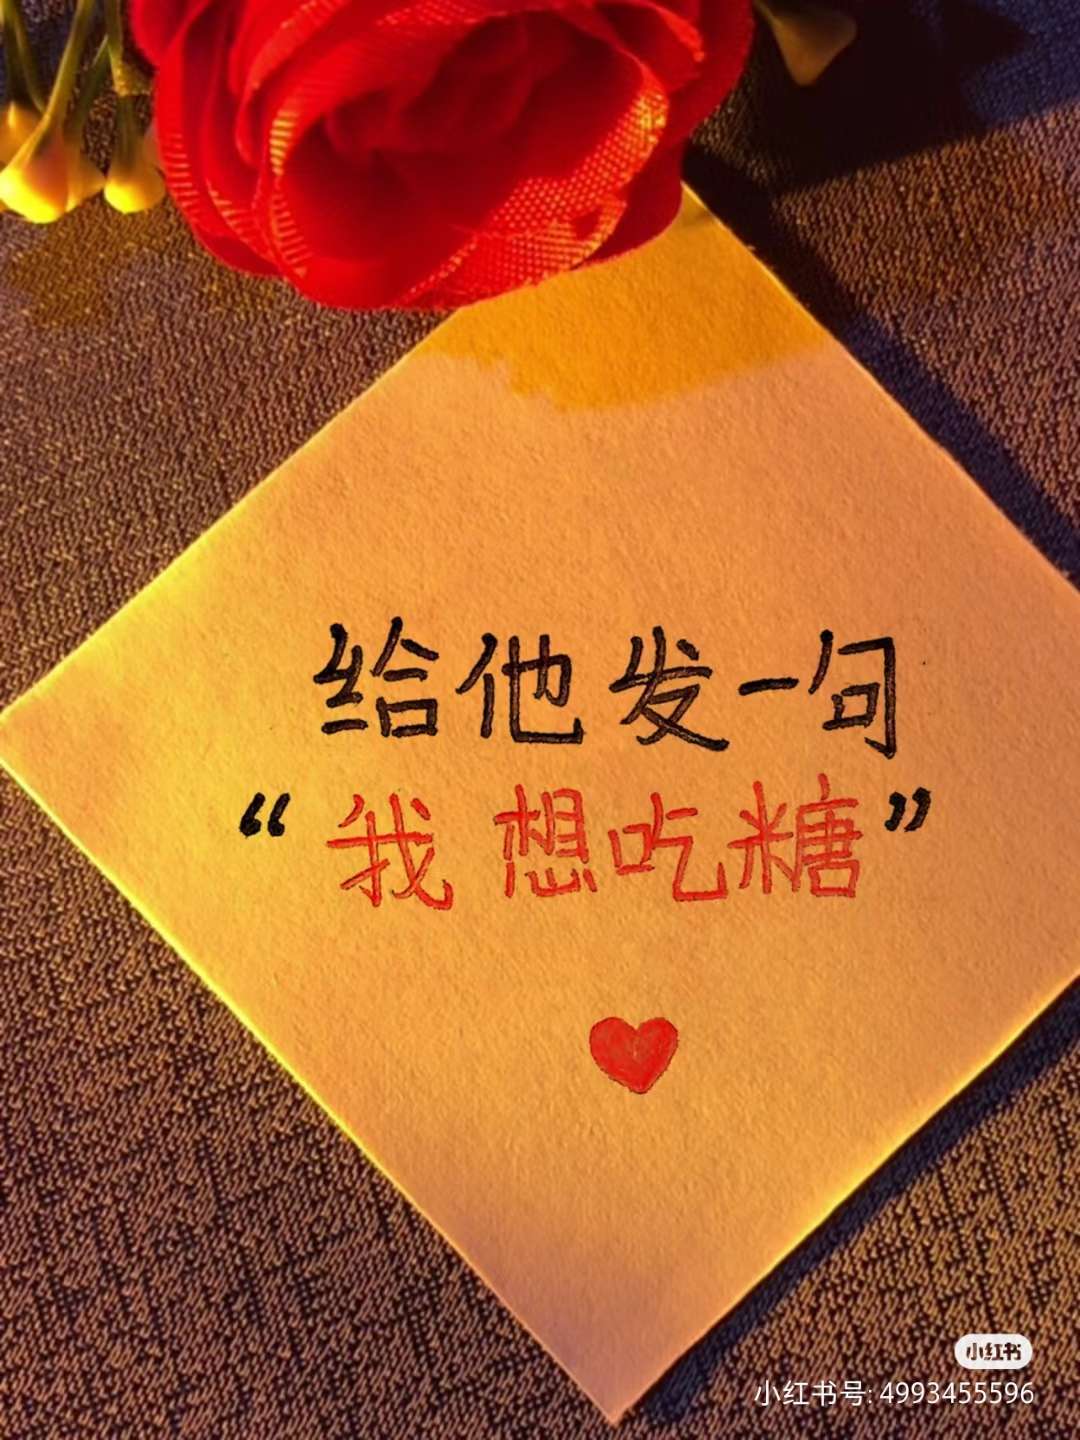 给他发一句
“我想吃糖”
小红书
小红书号: 4993455596